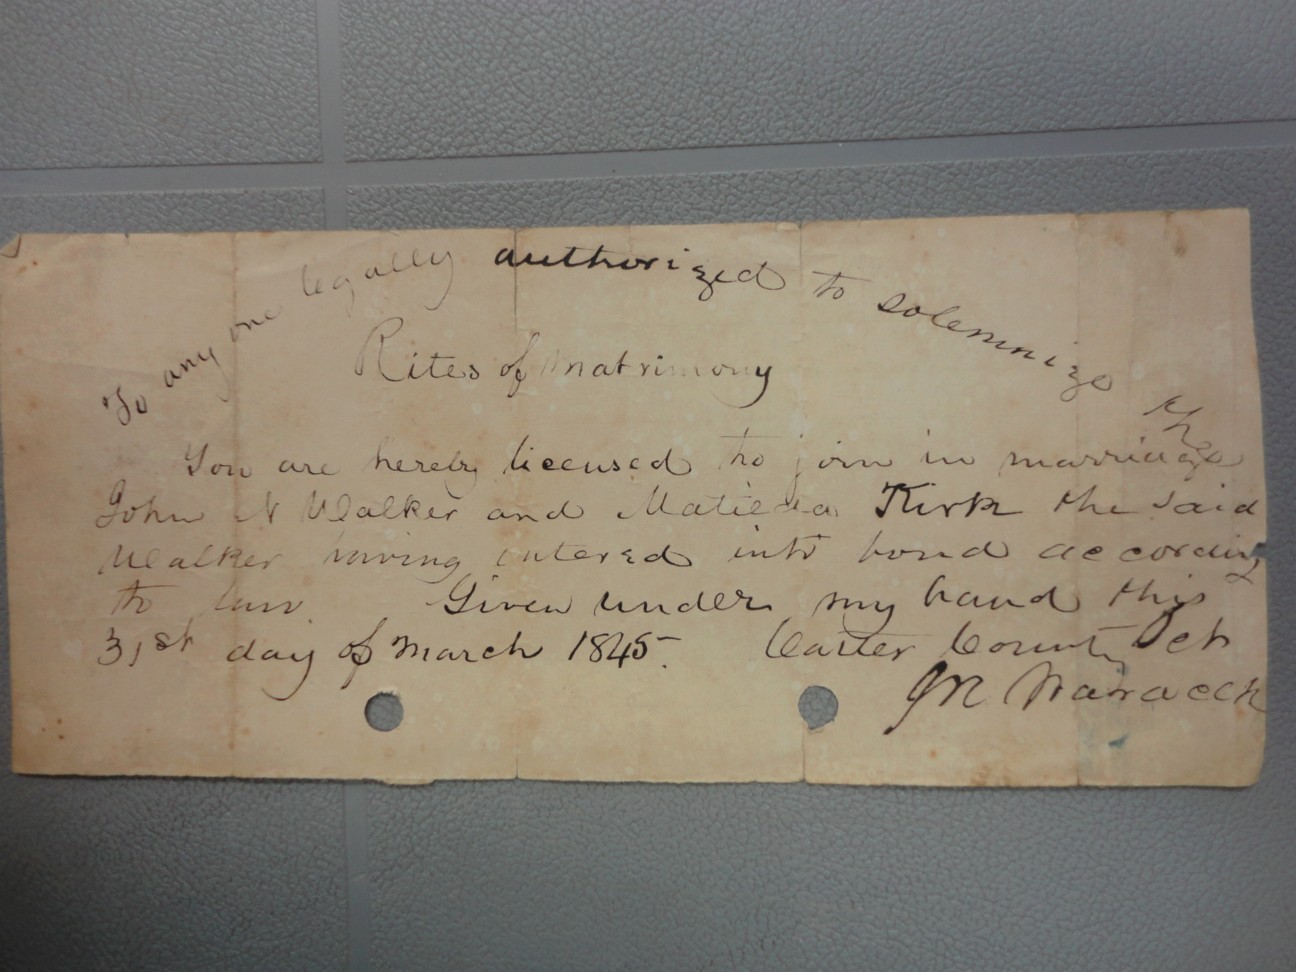 To any one legally authorized to solemnize the
Rites of matrimony
You are hereby licensed to join in marriage
John N Walker and Matilda Kirk the said
Walker having entered into bond according
to law Given under my hand this
31st day of March 1845. Carter County